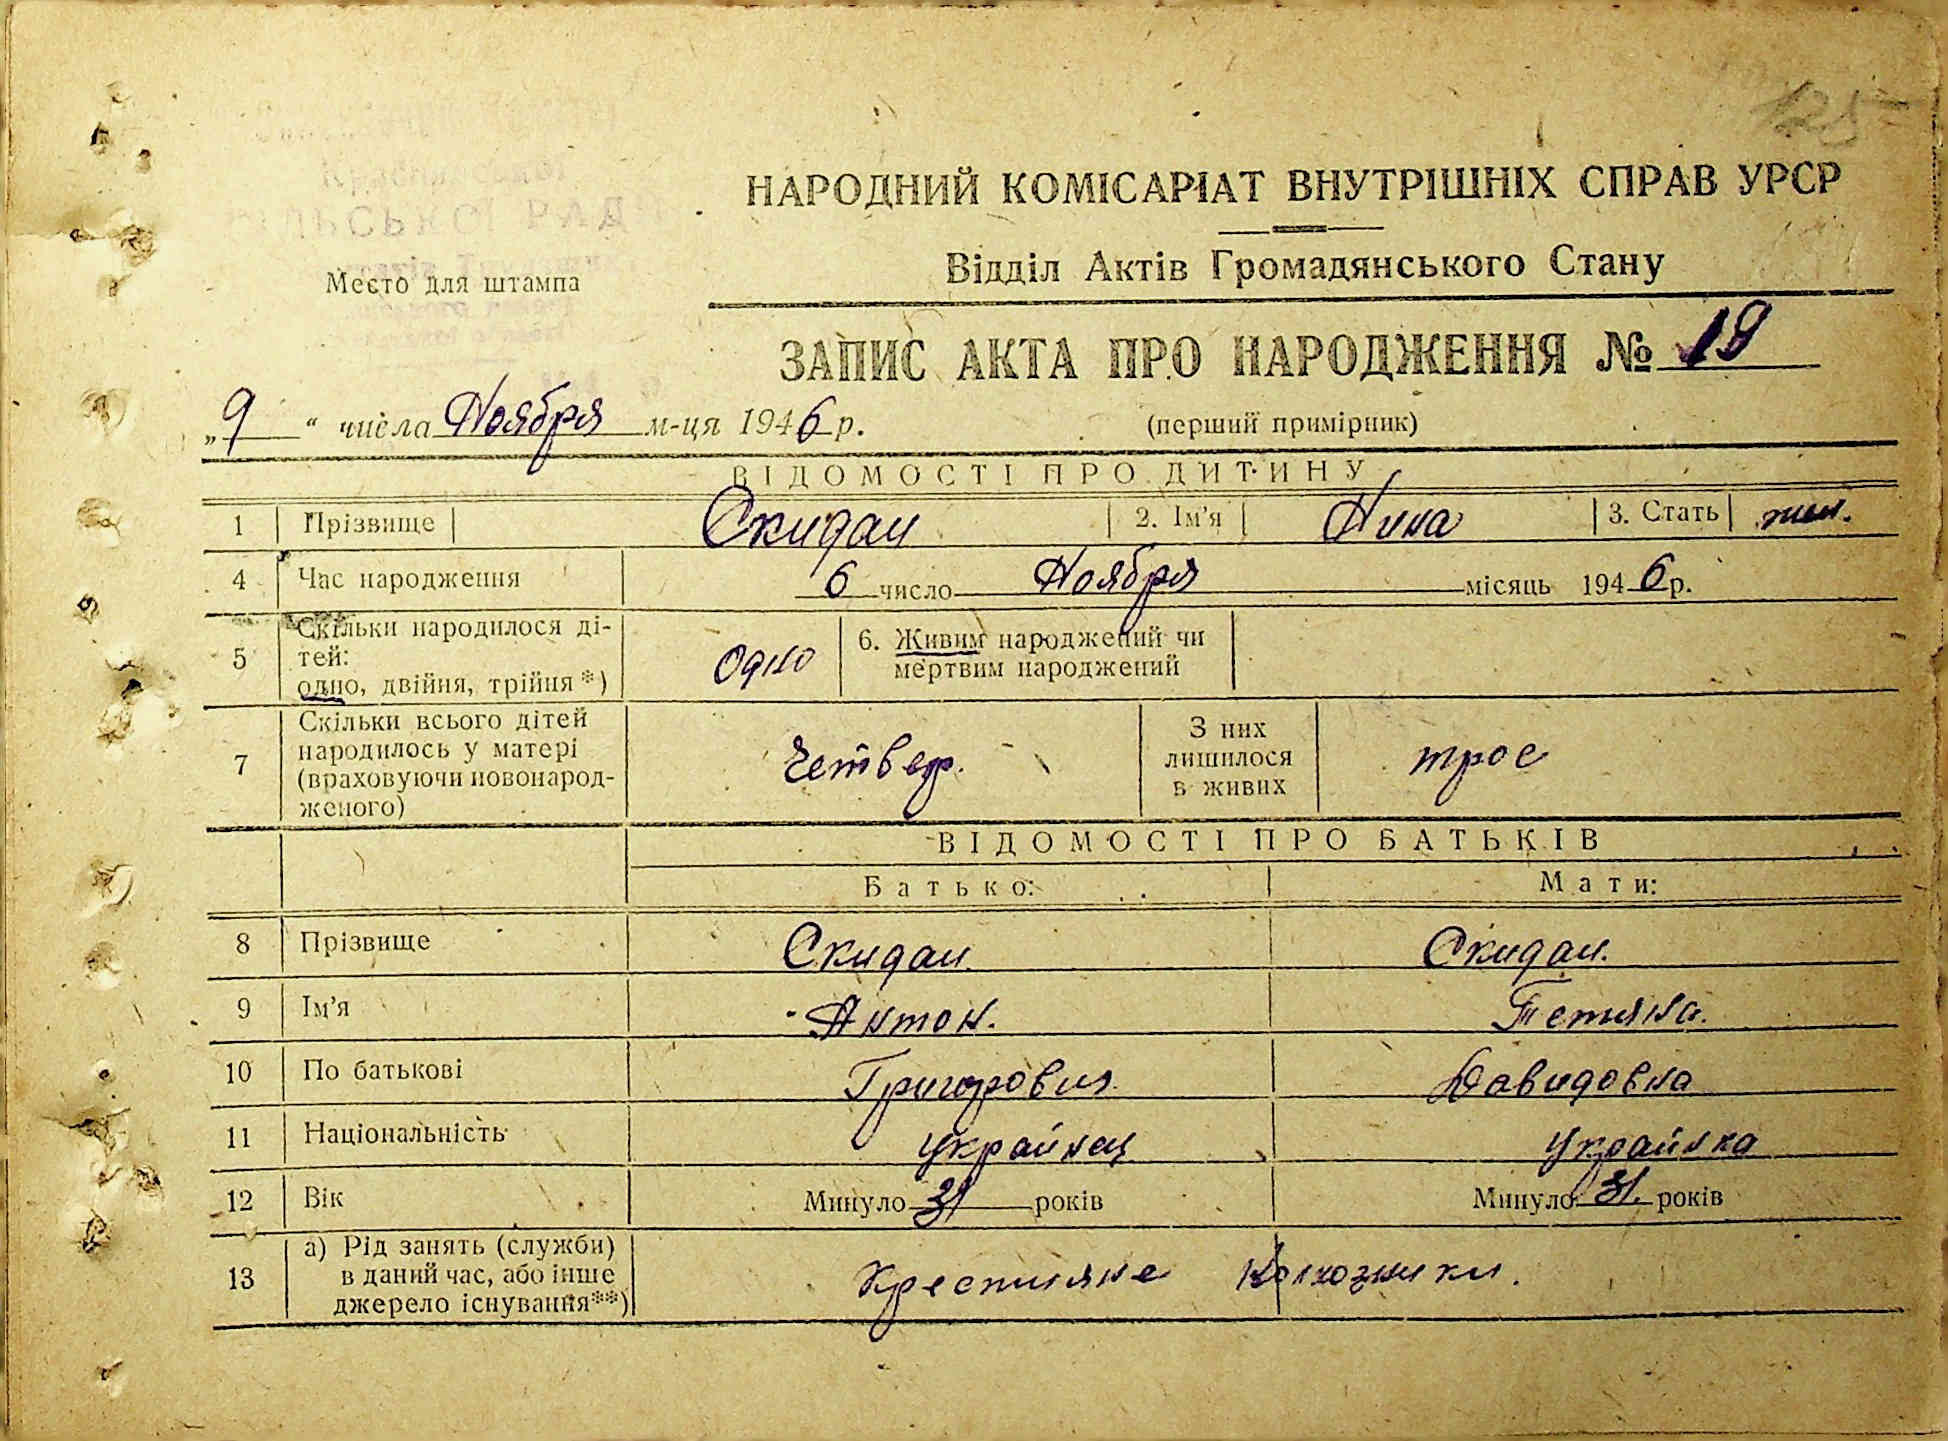 НАРОДНИЙ КОМІСАРІАТ ВНУТРІШНІХ СПРАВ УРСР
СІЛЬСЬКОЇ РАД
Відділ Актів Громадянського Стану
Место для штампа
ЗАПИС АКТА ПРО НАРОДЖЕННЯ № 19
„9“ числа Ноября м-ця 1946 р.
(перший примірник)
ВІДОМОСТІ ПРО ДИТИНУ
1 Прізвище Скидан 2. Ім'я Нина 3. Стать жен.
4 Час народження 6 число Ноября місяць 1946 р.
5 Скільки народилося ді-
тей:
одно, двійня, трійня *)
Одно
6. Живим народжений чи
мертвим народжений
7 Скільки всього дітей
народилось у матері
(враховуючи новонарод-
женого)
Четвер.
З них
лишилося
в живих
трое
ВІДОМОСТІ ПРО БАТЬКІВ
Батько: Мати:
8 Прізвище Скидан Скидан.
9 Ім'я Антон. Тетяна.
10 По батькові Григорович Давидовна
11 Національність украйнец украйнка
12 Вік Минуло 31 років Минуло 31. років
13 а) Рід занять (служби)
в даний час, або інше
джерело існування**)
Крестияне Колхозники.